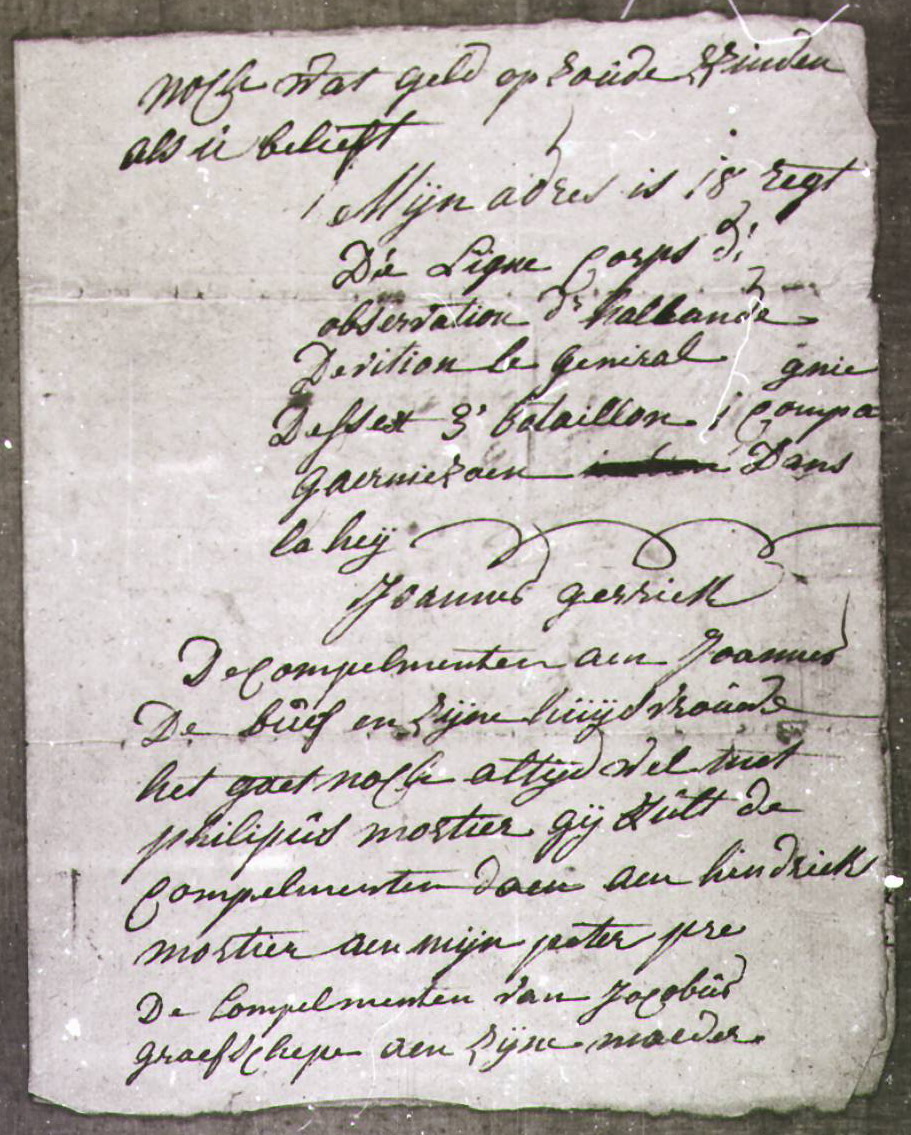 noch wat geld op zoude zinden
als u belieft
Mijn adres is 18 Regt
De Ligne Corps d'
observation dr hollande
Devition le general
Dessex 3e bataillon 1 Compa gnie
gaerniezoen Dans
la heÿ
Joannes gerrick
De Compelmenten aen Joannes
De buef en zijne huijsvrouwe
het gaet noch altijd wel met
philipus mortier gij zult de
Compelmenten doen aen hindrick
mortier aen mijn peter pre
De Compelmenten van Jacobus
graefschepe aen zijne moeder